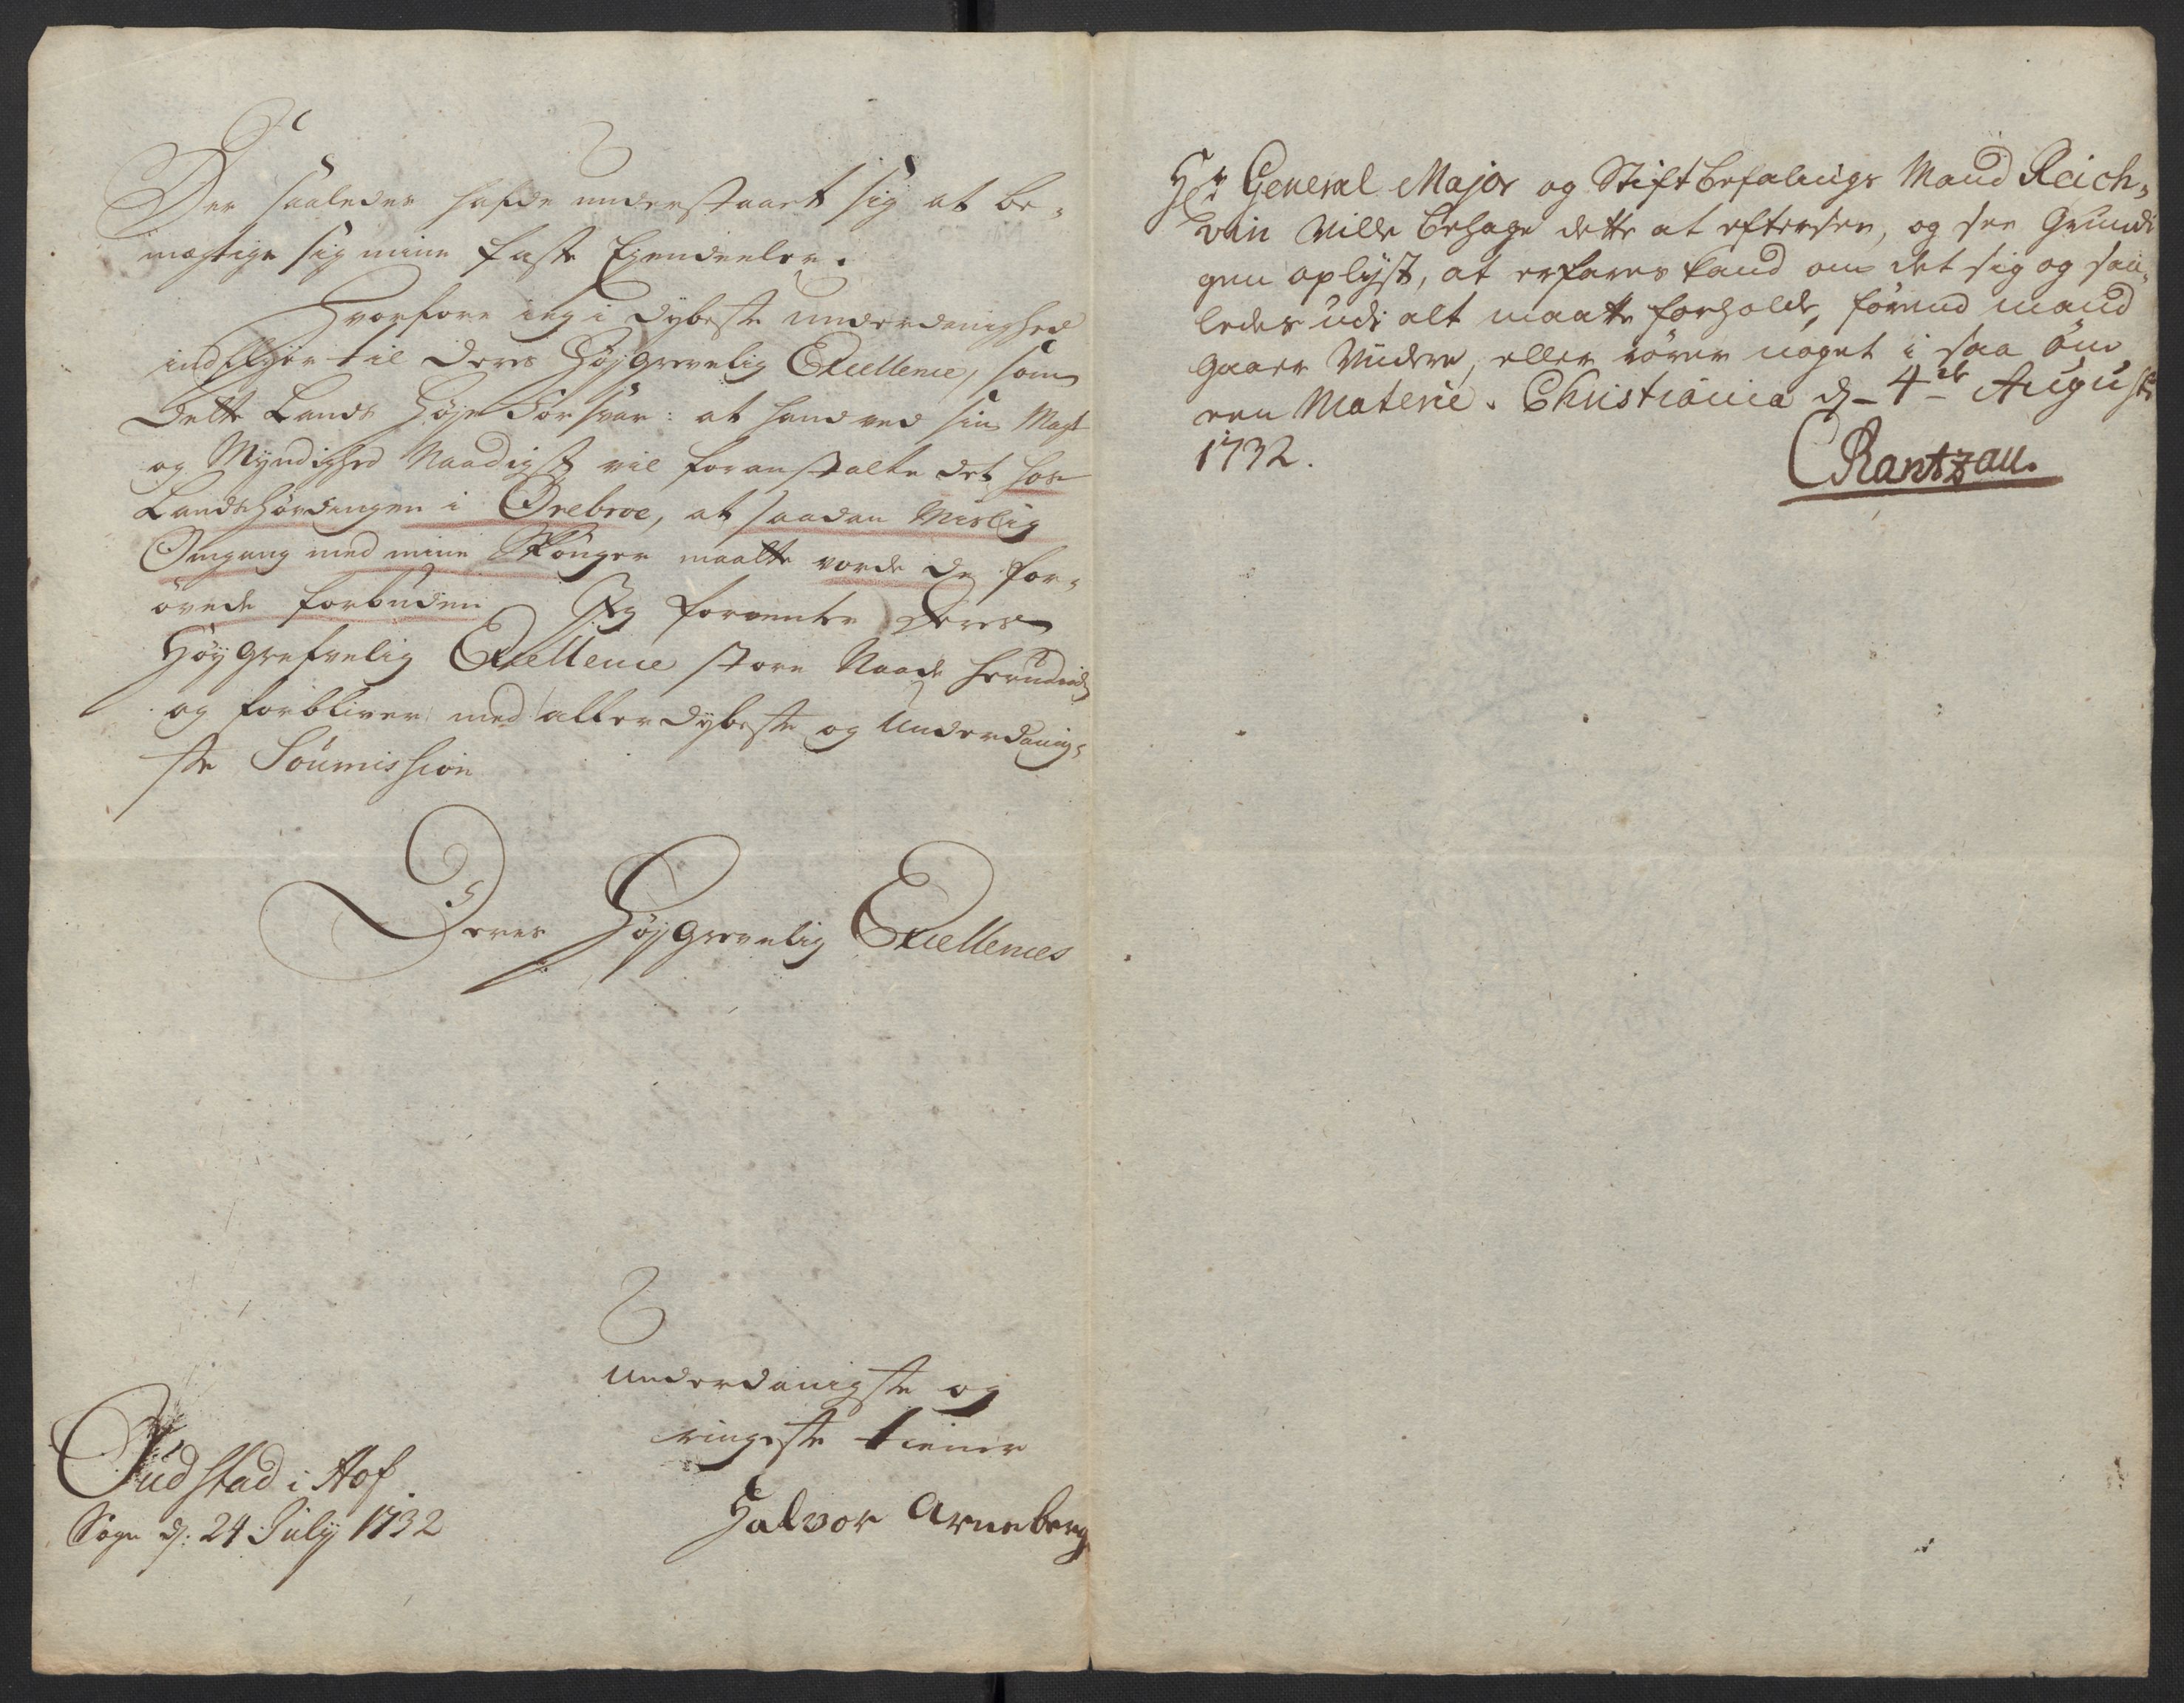 Der saaledes hafde understaaet sig at be-
mægtige sig mine faste Ejendeeler.
Hvorfore ieg i dybeste underdanighed
indflyer til Deres Høygrevelig Excellence, som
Dette Lands Høje Forsvar: at hand ved sin Magt
og Myndighed Naadigst vil foranstalte det hos
Landshøvdingen i Ørebroe, at saadan Mislig
Omgang med mine Skouger maatte vorde de for-
øvede forbuden Jeg forventer Deres
Høygrefvelig Excellence store Naade herudinden
og forbliver med allerdybeste og Underdanig-
ste Soumission
Deres Høygrevelig Excellences
underdanigste og
ringeste tiener
Halvor Arneberg
Judstad i Hof
Sogn d. 24 July 1732
Hr. General Major og Stiftbefalings Mand Reich-
wein Wille behage dette at eftersee, og see Grundi
gen oplyst, at erfares kand om det sig og saa-
ledes udi alt maatte forholde, førend mand
gaaer Videre, eller rører noget i saa øm
een Materie. Christiania d. 4de August
1732.
CRantzau.